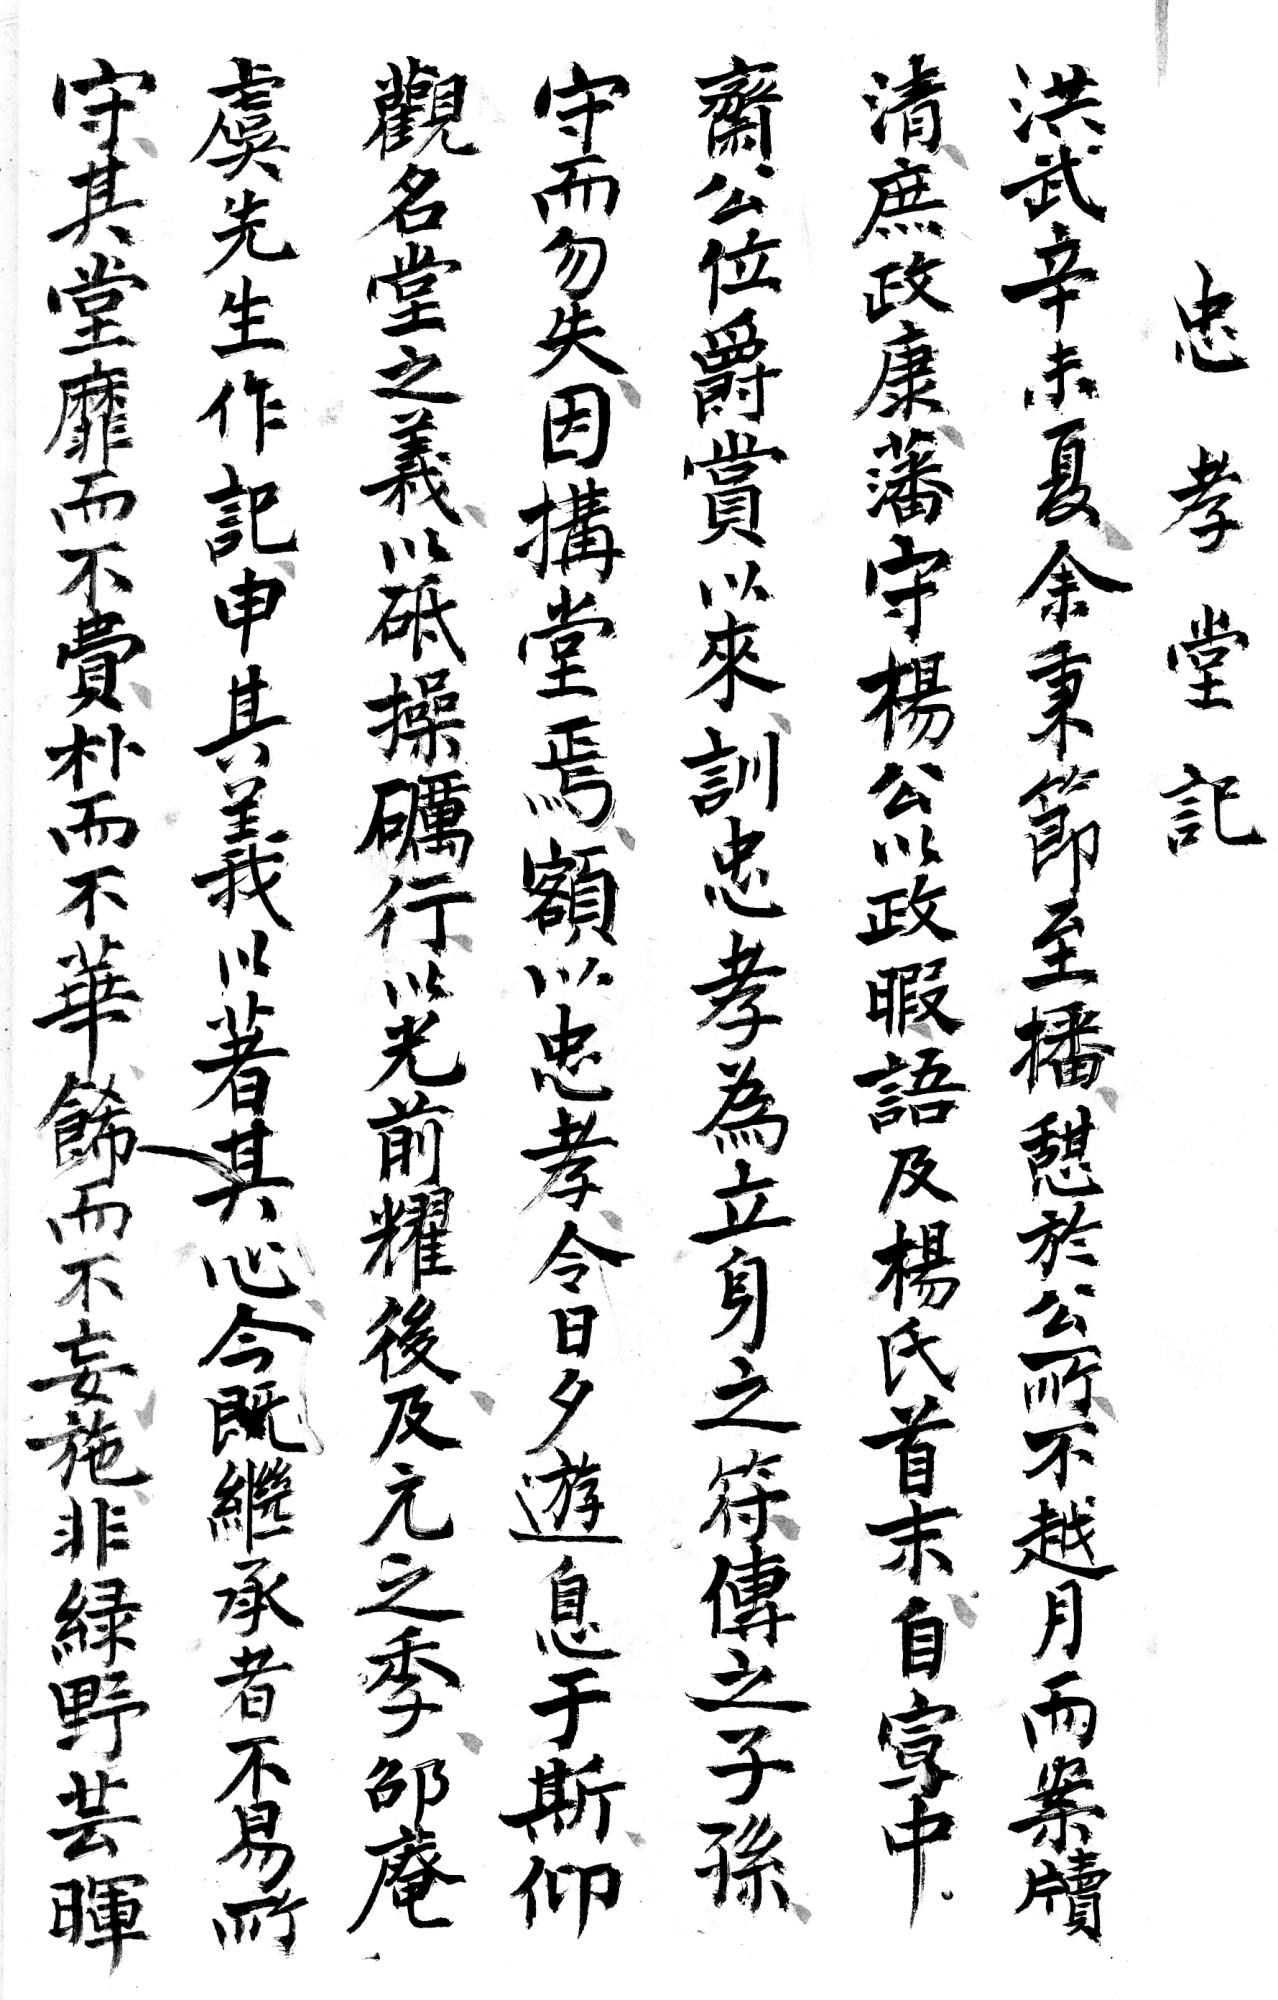 忠孝堂記
洪武辛未夏余秉節至播憩於公所不越月而案牘
清庶政康藩守楊公以政暇語及楊氏首末自寧中
齋公位爵賞以來訓忠孝為立身之符傳之子孫
守而勿失因搆堂焉額以忠孝令日夕遊息于斯仰
觀名堂之義以砥操礪行以光前耀後及元之季邵庵
虞先生作記申其義以著其心今既繼承者不易所
守其堂靡而不費朴而不華餙而不妄施非緑野芸暉